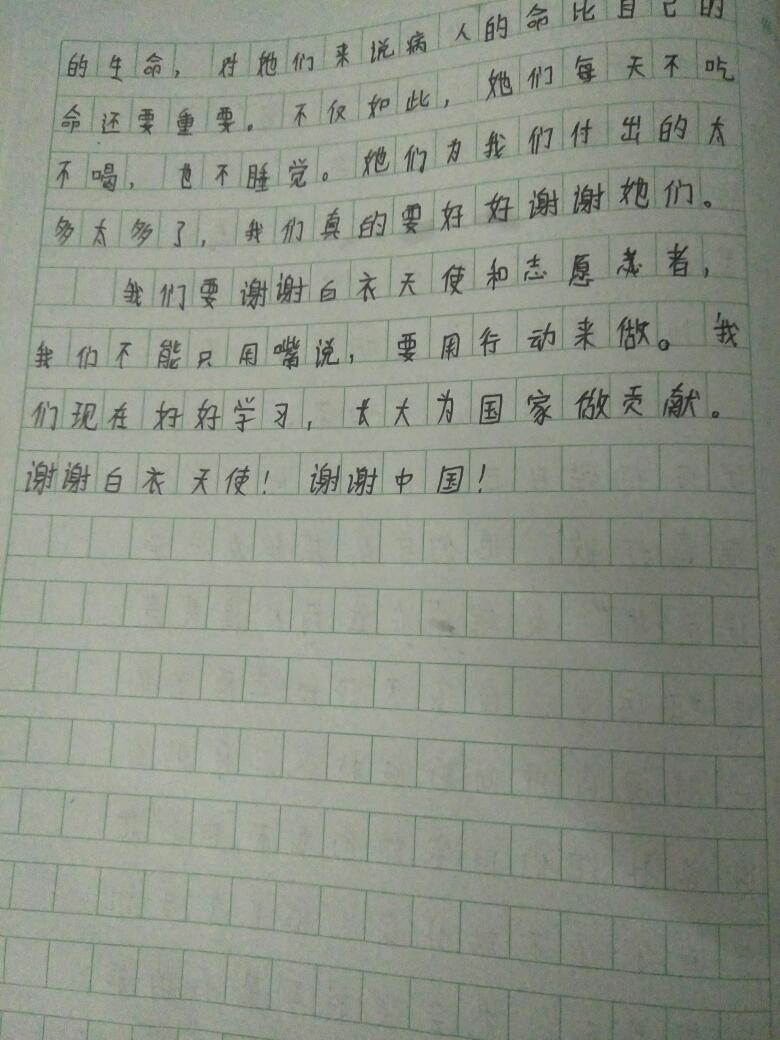 的生命，对她们来说病人的命比自己的
命还要重要。不仅如此，她们每天不吃
不喝，也不睡觉。她们为我们付出的太
多太多了，我们真的要好好谢谢她们。
我们要谢谢白衣天使和志愿者，
我们不能只用嘴说，要用行动来做。我
们现在好好学习，长大为国家做贡献。
谢谢白衣天使！谢谢中国！